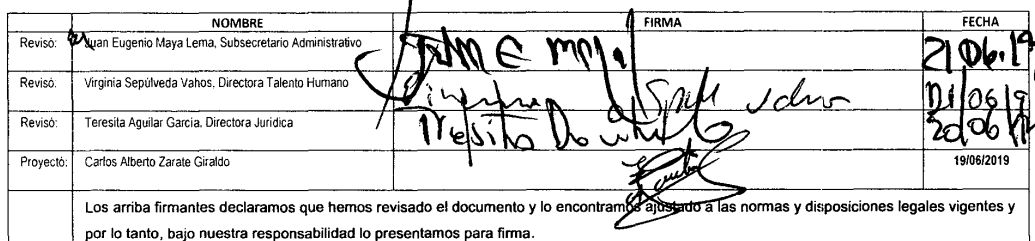 NOMBRE FIRMA FECHA
Revisó: Juan Eugenio Maya Lema, Subsecretario Administrativo 21 06.19
Revisó: Virginia Sepúlveda Vahos, Directora Talento Humano 21/06/19
Revisó: Teresita Aguilar Garcia. Directora Jurídica 20/06/19
Proyectó: Carlos Alberto Zarate Giraldo 19/06/2019
Los arriba firmantes declaramos que hemos revisado el documento y lo encontramos ajustado a las normas y disposiciones legales vigentes y
por lo tanto, bajo nuestra responsabilidad lo presentamos para firma.